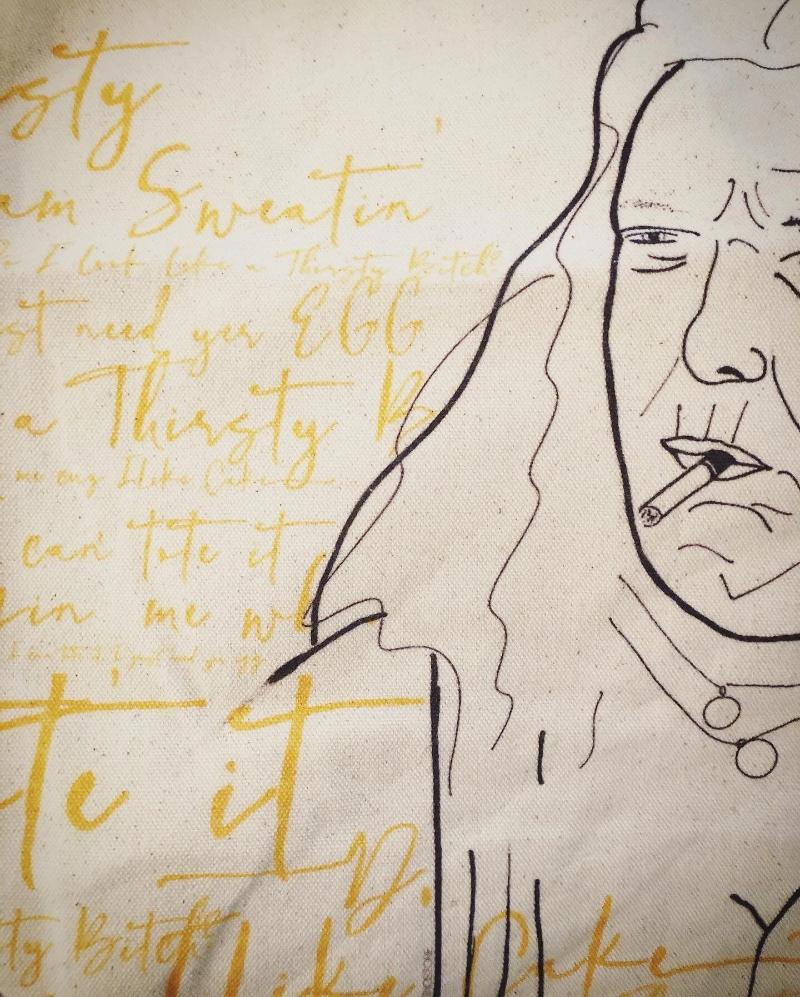 sty
am Sweatin'
Do I look like a Thirsty Bitch?
st need yer EGG
a Thirsty B
me my I like Cake
can tote it
in me wh
te it
D.
ty Bitch?
I like Cake